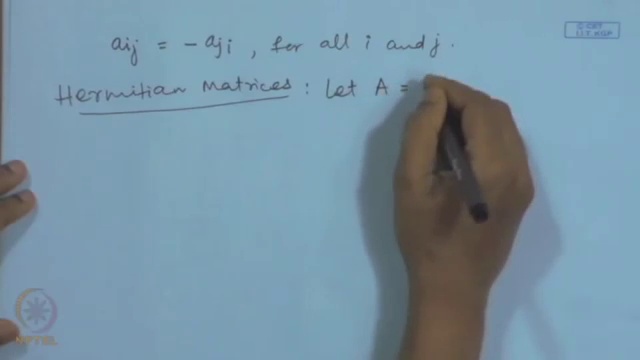 © CET
I.I.T. KGP
aij = - aji , for all i and j.
Hermitian Matrices : Let A =
NPTEL